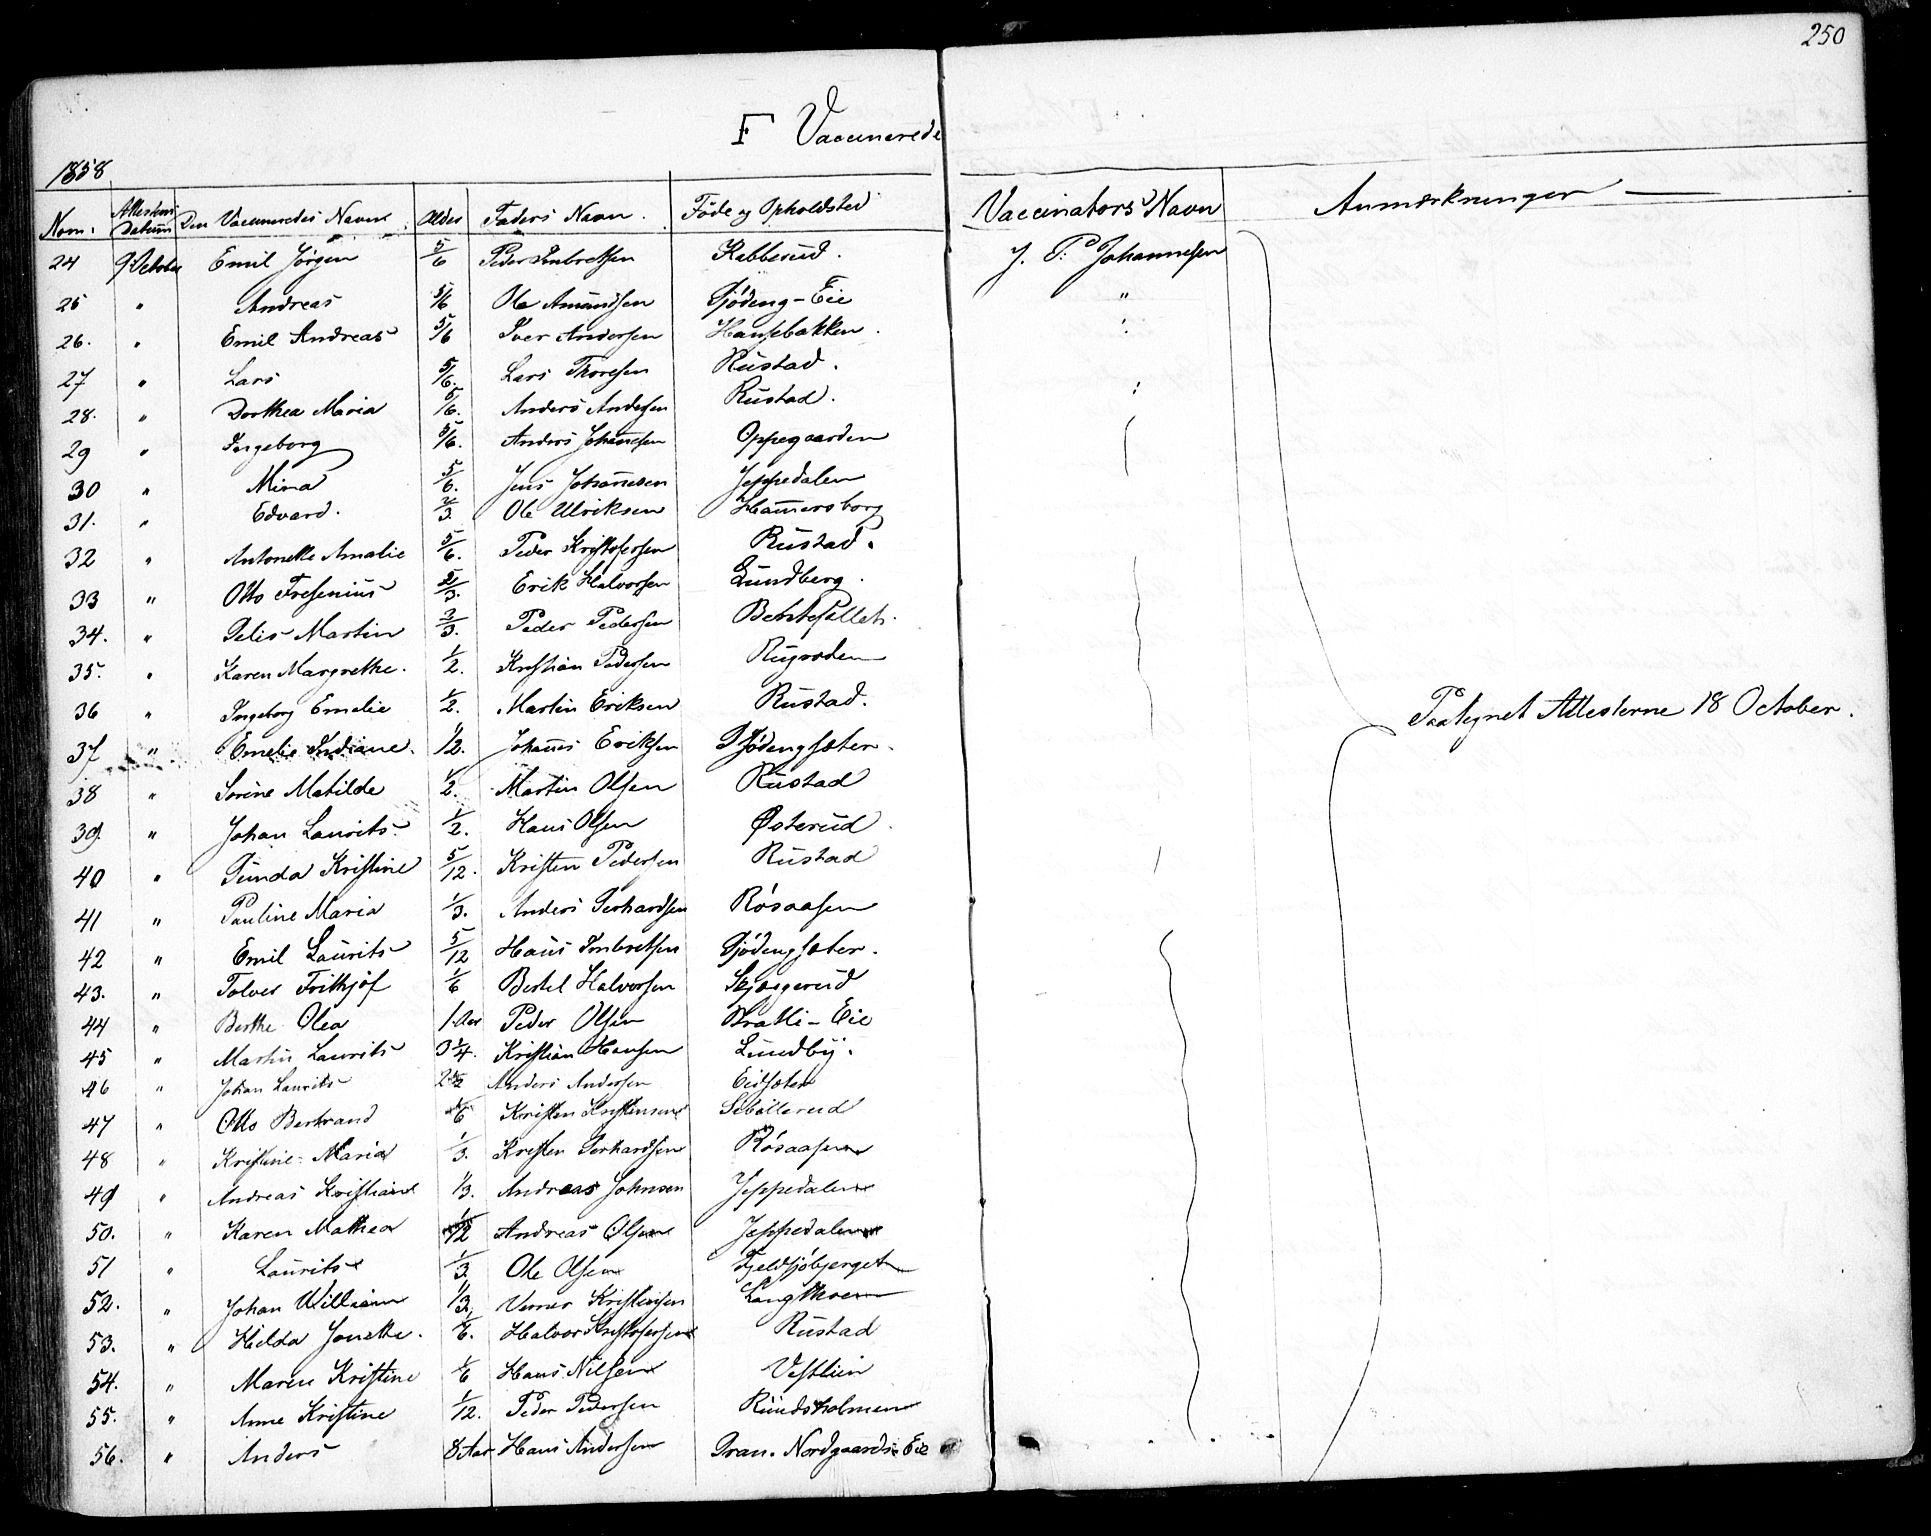 250
F Vaccinerede
1858
Nom. Attestens Datum Den Vaccineredes Navn Alder Faders Navn. Føde og Opholdsted Vaccinators Navn Anmærkninger
24 9 October Emil Jörgen 5/6 Peder Imbretsen Kabberud. J. P. Johannesen
25 " Andreas 5/6 Ole Amundsen Tjödeng-Eie "
26. " Emil Andreas 5/6 Iver Andersen Hansebakken. "
27 " Lars 5/6. Lars Thoresen Rustad. "
28. " Dorthea Maria 5/6. Anders Andersen Rustad.
29 " Ingeborg 5/6. Anders Johannesen Oppegaarden
30 " Mina 5/6. Jens Johannesen Jeppedalen
31. " Edvard. 2/3. Ole Ulriksen Hammersborg
32 " Antonette Amalie 5/6. Peder Kristofersen Rustad.
33 " Otto Fresenius 2/3. Erik Halvorsen Lundberg.
34. " Martin 2/3. Peder Pedersen
35. " Karen Margrethe. 1/2. Kristian Pedersen Rugroden
36 " Ingeborg Emelie 1/2. Martin Eriksen Rustad. Paategnet Attesterne 18 October.
37 " Emelie Indiane. 1/2. Johannes Eriksen Tjödengsæter.
38 " Sorine Matilde 1/2. Martin Olsen Rustad
39. " Johan Laurits. 1/2. Hans Olsen Østerud.
40 " Gunda Kristine 5/12. Kristen Pedersen Rustad
41 " Pauline Maria 1/3. Anders Gerhardsen Rösaasen
42 " Emil Laurits 5/12 Hans Imbretsen Tjödengsæter.
43. " Tolver Frithjof 1/6 Bertel Halvorsen Skjægerud
44 " Berthe Olea 1 Aar Peder Olsen Bratli-Eie
45 " Martin Laurits 3 1/4. Kristian Hansen Lundby.
46 " Johan Laurits 2 1/2 Anders Andersen Eidsæter
47 " Otto Bertrand 1/6 Kristen Kristensen Sibillerud
48 " Kristine Maria 1/3. Kristen Gerhardsen Rösaasen
49 " Andreas Kristian 1/3. Andreas Johnsen Jeppedalen
50. " Karen Mathea 1/2 Andreas Olsen Jeppedalen
51 " Laurits 1/3. Ole Olsen Fjeldsjöbjerget
52. " " Johan William 1/3. Verner Kristiansen Langthoen
53. " Hilda Jonette. 1/6. Halvor Kristofersen Rustad
54. " Maren Kristine 1/6 Hans Nilsen Vestlien
55. " Anne Kristine 1/12. Peder Pedersen Rundsholmen
56. " Anders 8 Aar Hans Andersen Gran. Nordgaards Eie